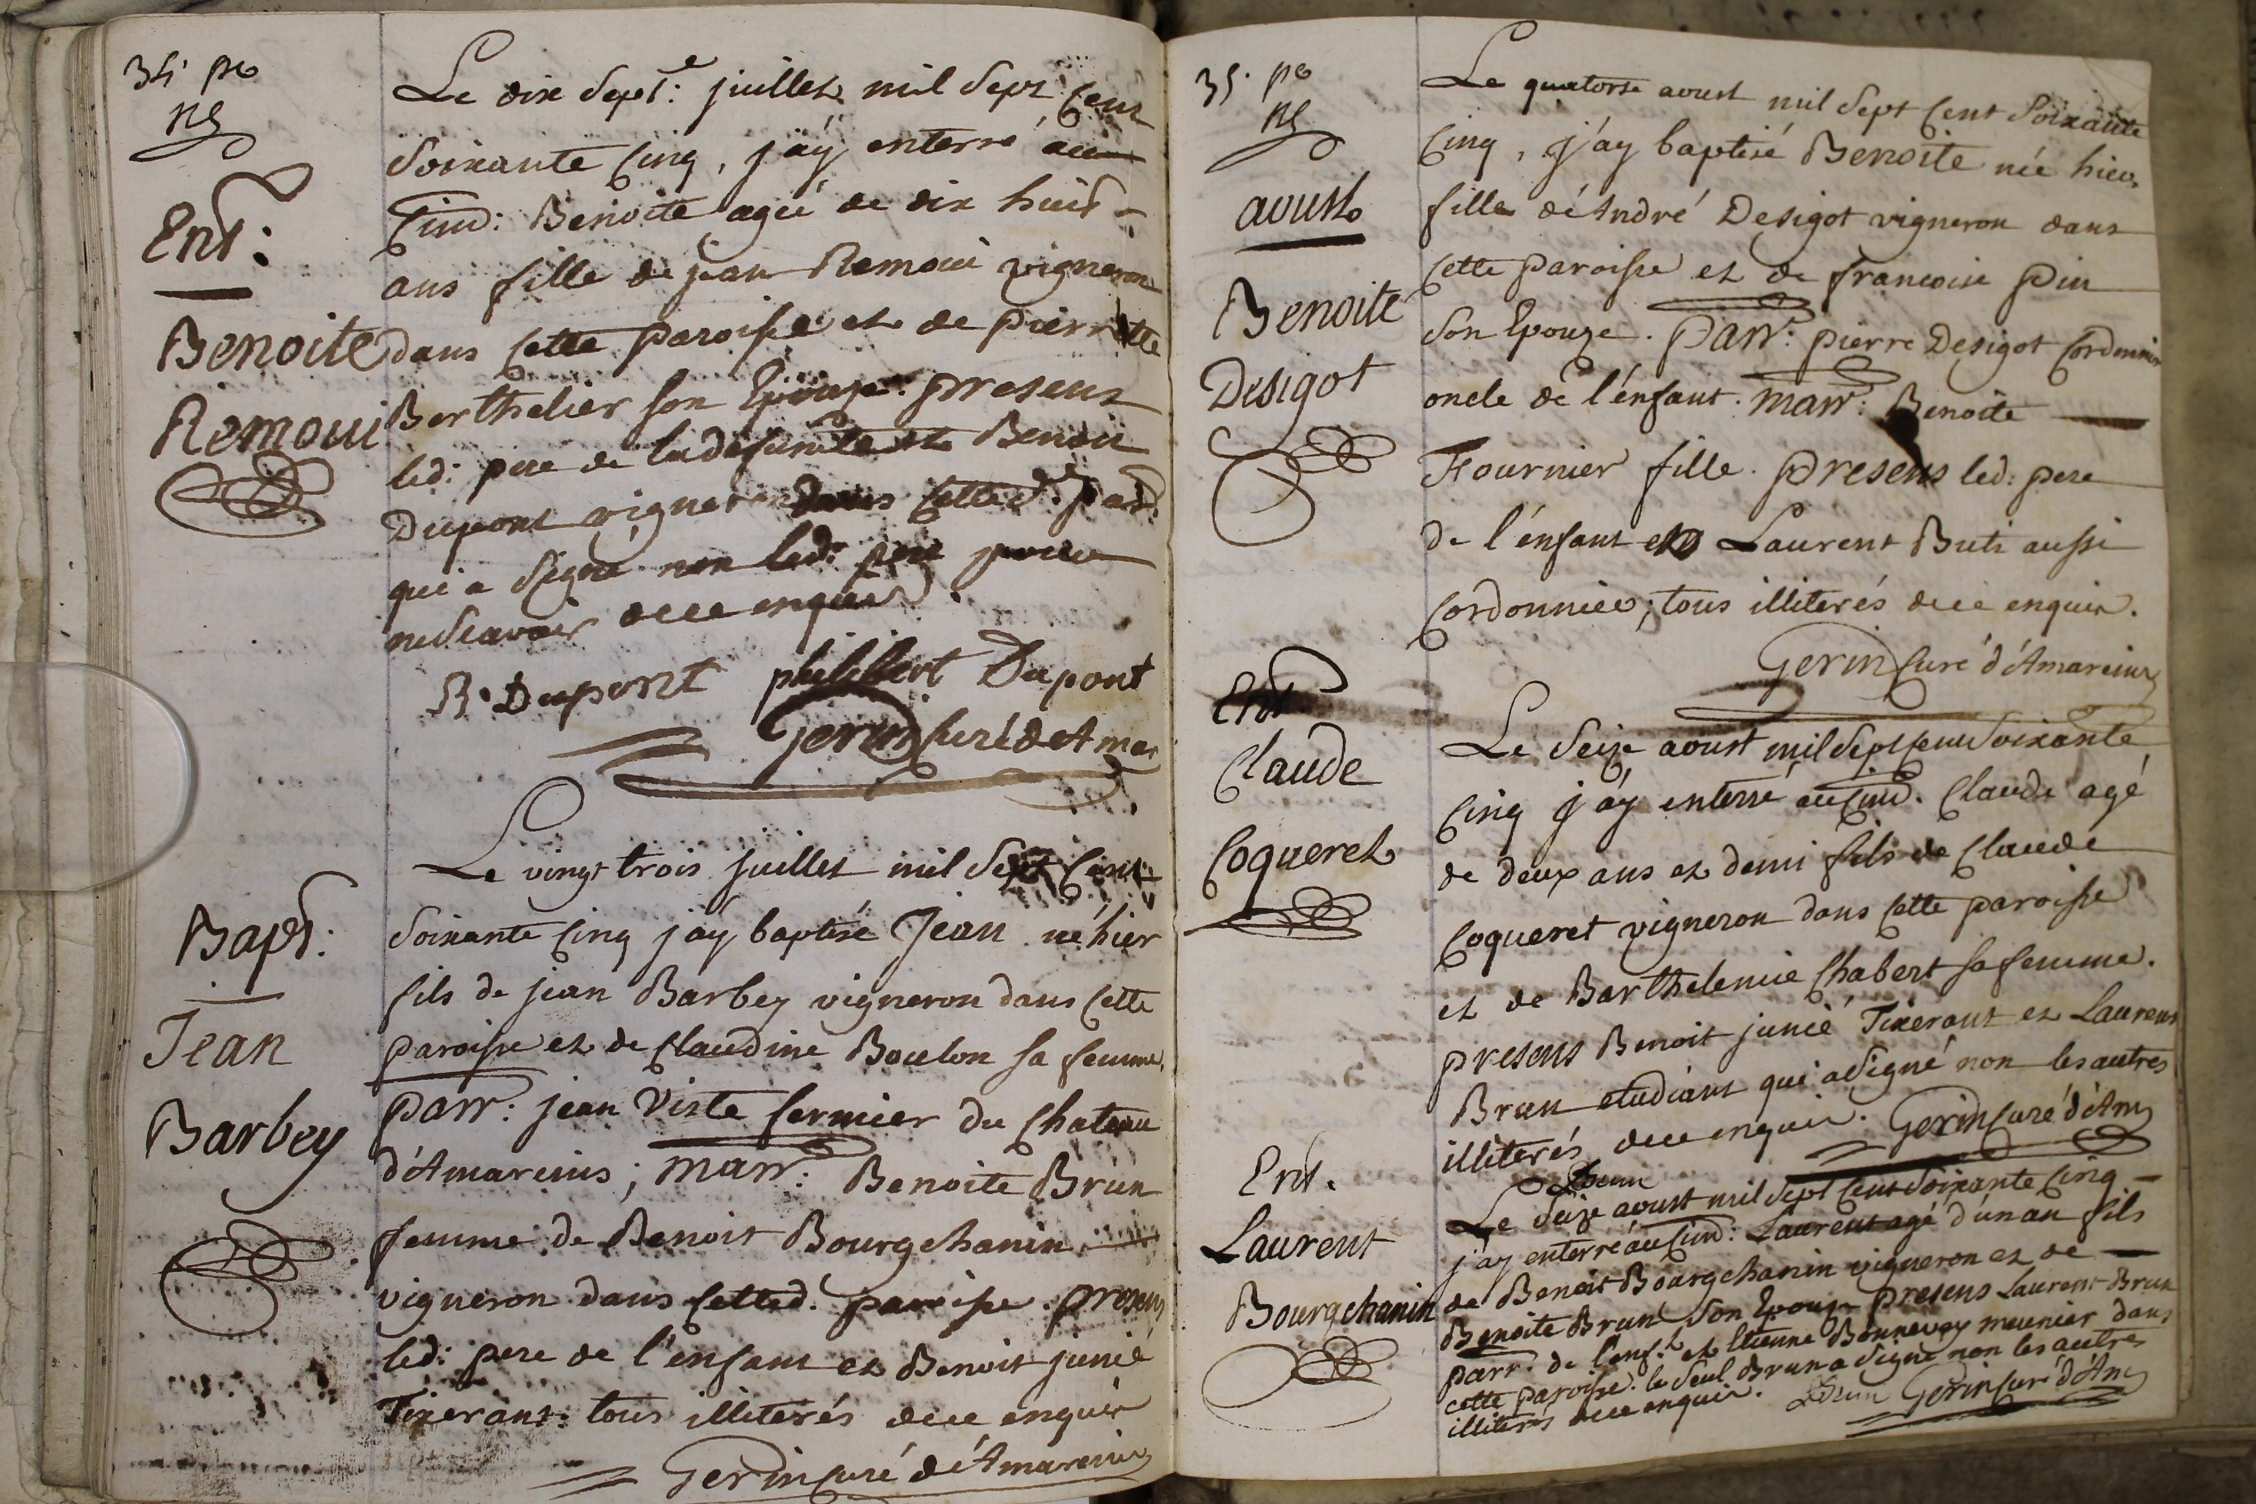 34. pe
Ent:
Benoite
Remoui
Le dix Sept.e juillet mil Sept Cent
Soixante Cinq, j'aÿ enterré au
Cim̃: Benoite ageé de dix huit
ans fille de jean Remoui vigneron
dans Cette paroisse et de pierrette
Berthelier son Epouse. presens
led: pere de lad defunte et Benoit
Dupont vigneron dans Cetted. par:
qui a Signé non led: pere pour
ne Scavoir de ce enquis.
B. Dupont philibert Dupont
Gerin Curé de Amar
Bapt:
Jean
Barbey
Le vingt trois juillet mil Sept Cent
Soixante Cinq j'aÿ baptisé Jean né hier
fils de jean Barbey vigneron dans Cette
paroisse et de Claudine Boulon sa femme.
parr: jean Viste fermier du Chateau
d'Amareins; marr: Benoite Brun
femme de Benoit Bourgchanin
vigneron dans Cetted. paroisse. presens
led: pere de l'enfant et Benoit junié
Tixerant: tous illiterés de ce enquis
Gerin Curé d'Amareins
35. pe
aoust
Benoite
Desigot
Le quatorse aoust mil Sept Cent Soixante
Cinq, j'ay baptisé Benoite née hier
fille d'André Desigot vigneron dans
Cette paroisse et de francoise pin
Son Epouze. parr: pierre Desigot Cordonnier
oncle de l'énfant. marr: Benoite
Fournier fille. presens led: pere
de l'énfant et Laurent Buti aussi
Cordonnier; tous illiterés de ce enquis.
Gerin Curé d'Amareins
Ent
Claude
Coqueret
Le Seize aoust mil Sept Cent Soixante
Cinq j'aÿ enterré au Cim̃. Claude agé
de deux ans et demi fils de Claude
Coqueret vigneron dans Cette paroisse
et de Barthelemie Chabert sa femme.
presens Benoit junié Tixerant et Laurent
Brun etudiant qui a Signé non les autres
illiterés de ce enquis. Gerin Curé d'Am
LBrun
Ent.
Laurent
Bourgchanin
Le Seize aoust mil Sept Cent Soixante Cinq
j'ay enterré au Cim̃: Laurent agé d'un an fils
de Benoit Bourgchanin vigneron et de
Benoite Brun Son Epouze presens Laurent Brun
parr. de l'enf.t et Etienne Bonnevay meunier dans
cette paroisse. le Seul Brun a Signé non les autres
illiterés de ce enquis. LBrun Gerin Curé d'Am